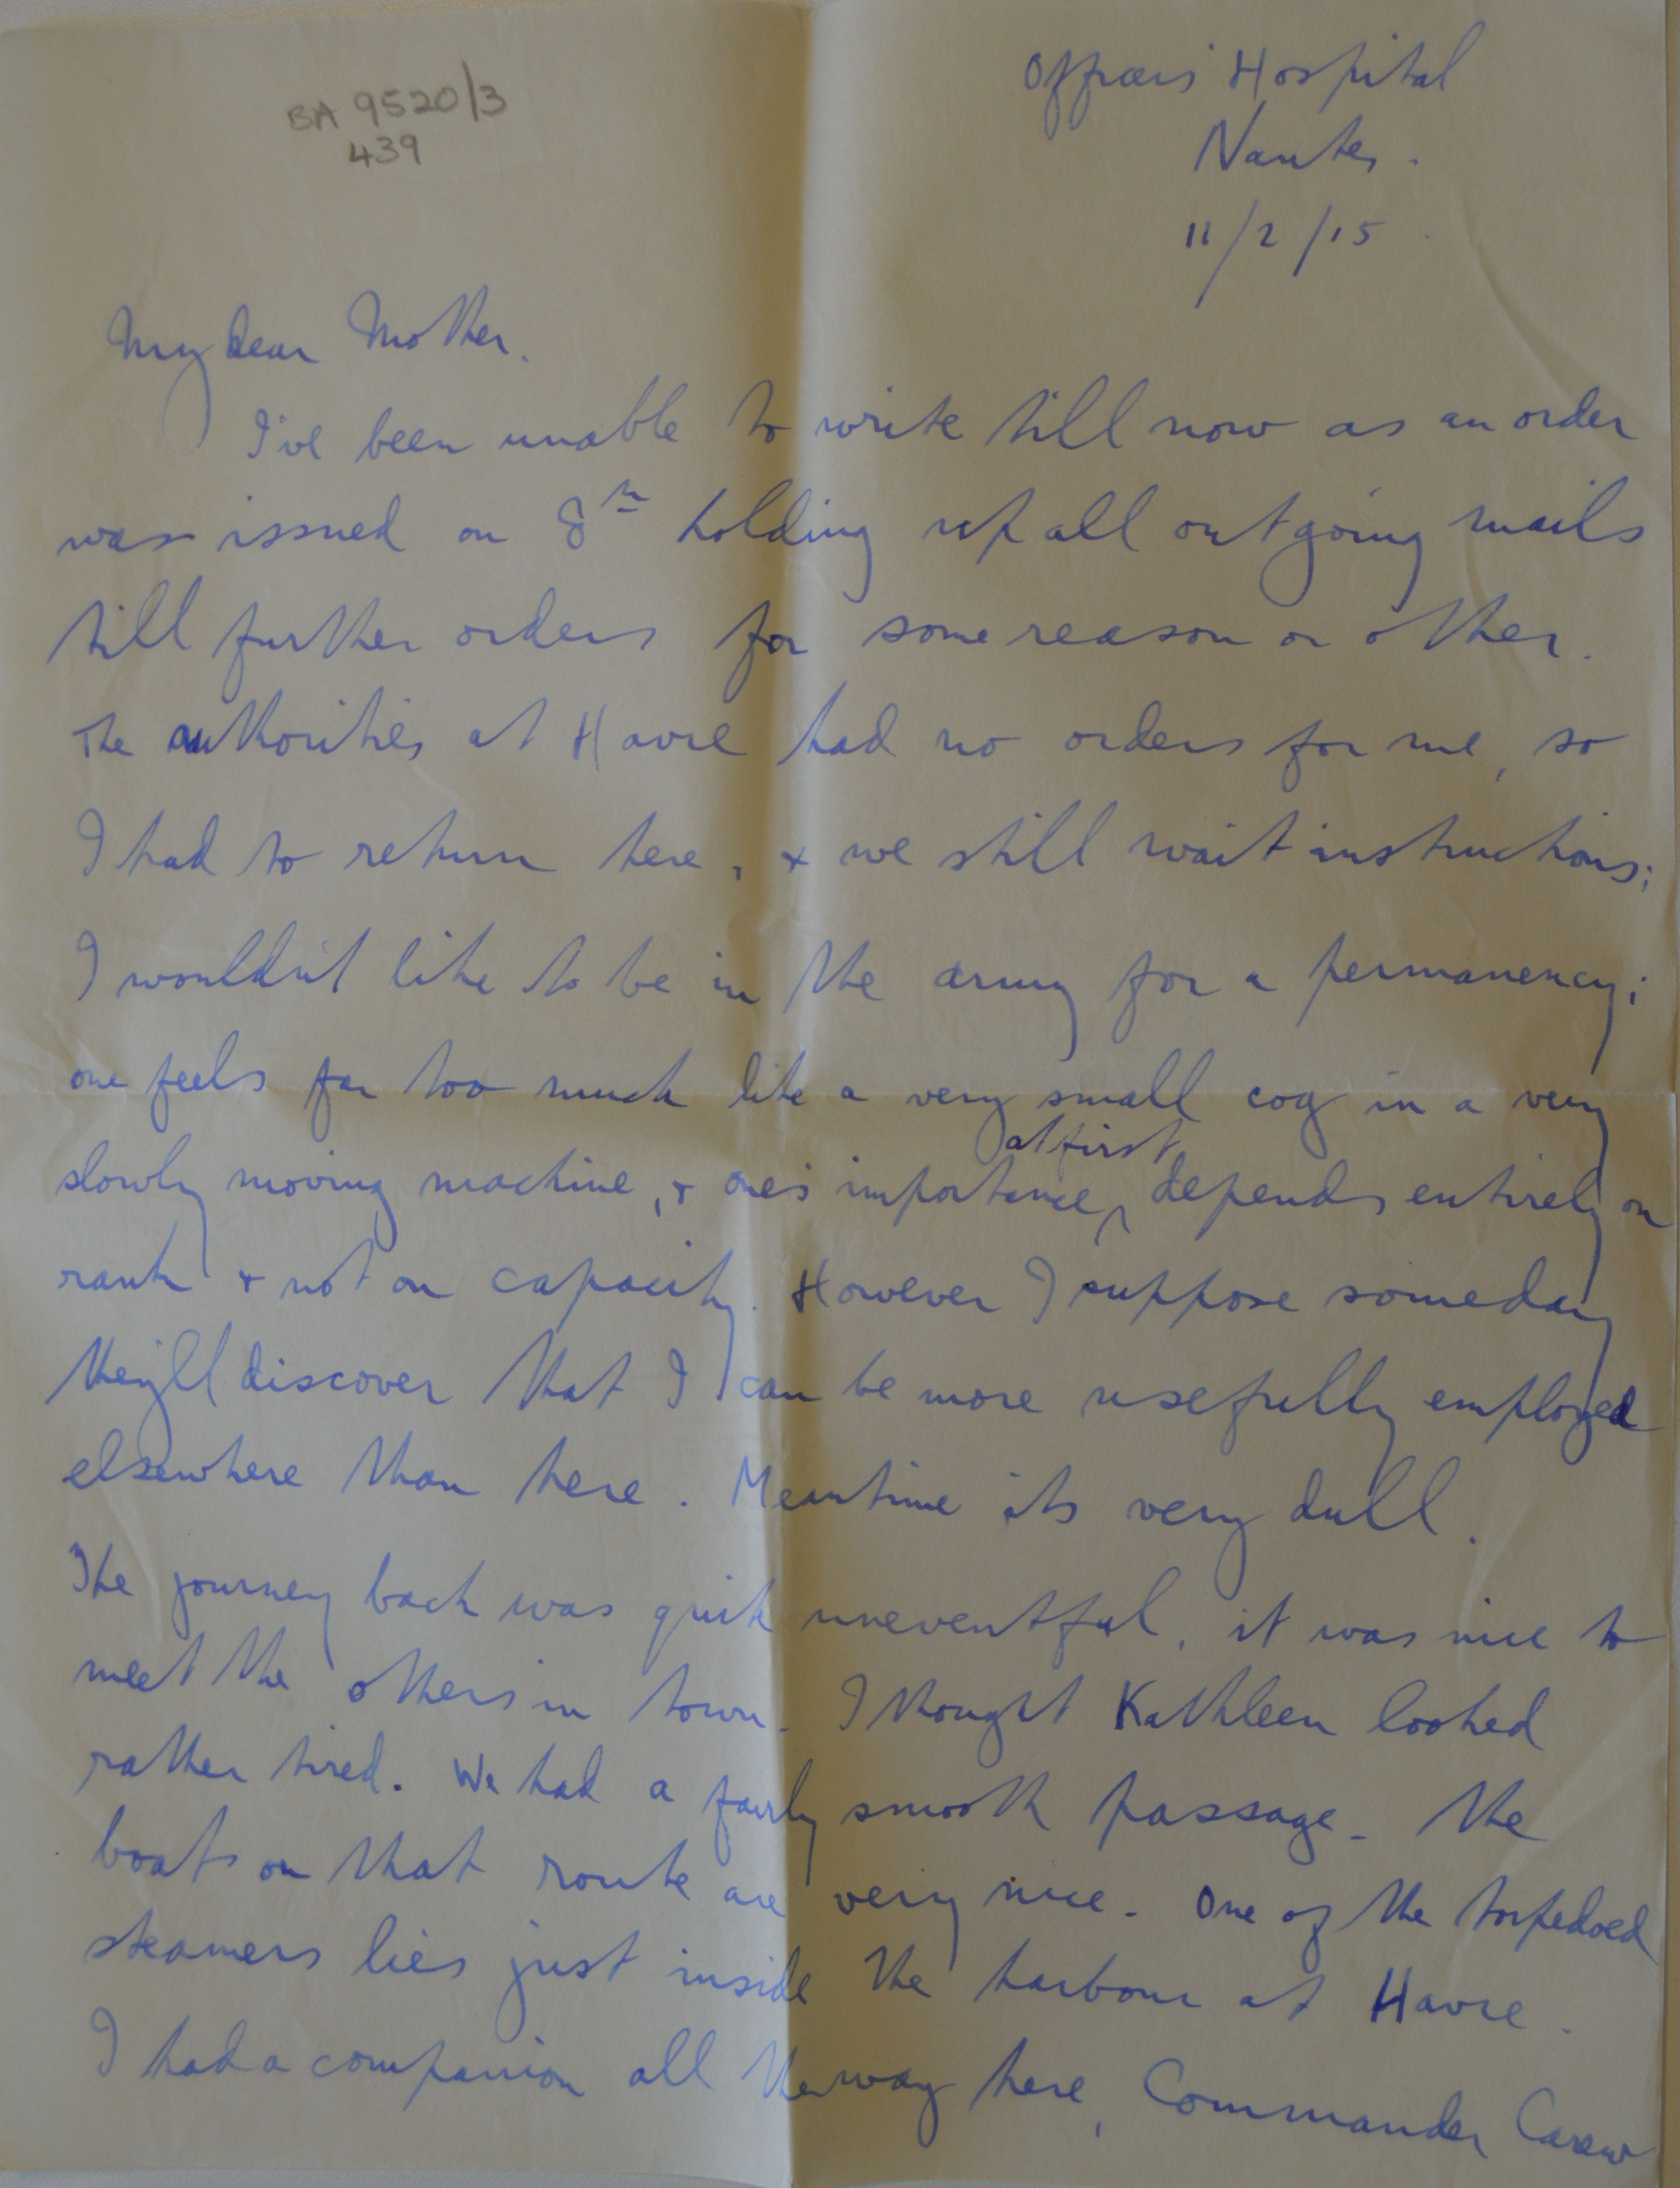 BA 9520/3
439
Officers' Hospital
Nantes.
11/2/15.
My dear Mother.
I've been unable to write till now as an order
was issued on 8th holding up all outgoing mails
till further orders for some reason or other.
The authorities at Havre had no orders for me, so
I had to return here, + we still wait instructions;
I wouldn't like to be in the army for a permanency;
one feels far too much like a very small cog in a very
slowly moving machine, + one's importance at first depends entirely on
rank + not on capacity. However I suppose someday
they'll discover that I can be more usefully employed
elsewhere than here. Meantime its very dull.
The journey back was quite uneventful, it was nice to
meet the others in town. I thought Kathleen looked
rather tired. We had a fairly smooth passage. The
boats on that route are very nice. One of the torpedoed
steamers lies just inside the harbour at Havre.
I had a companion all the way here, Commander Carew